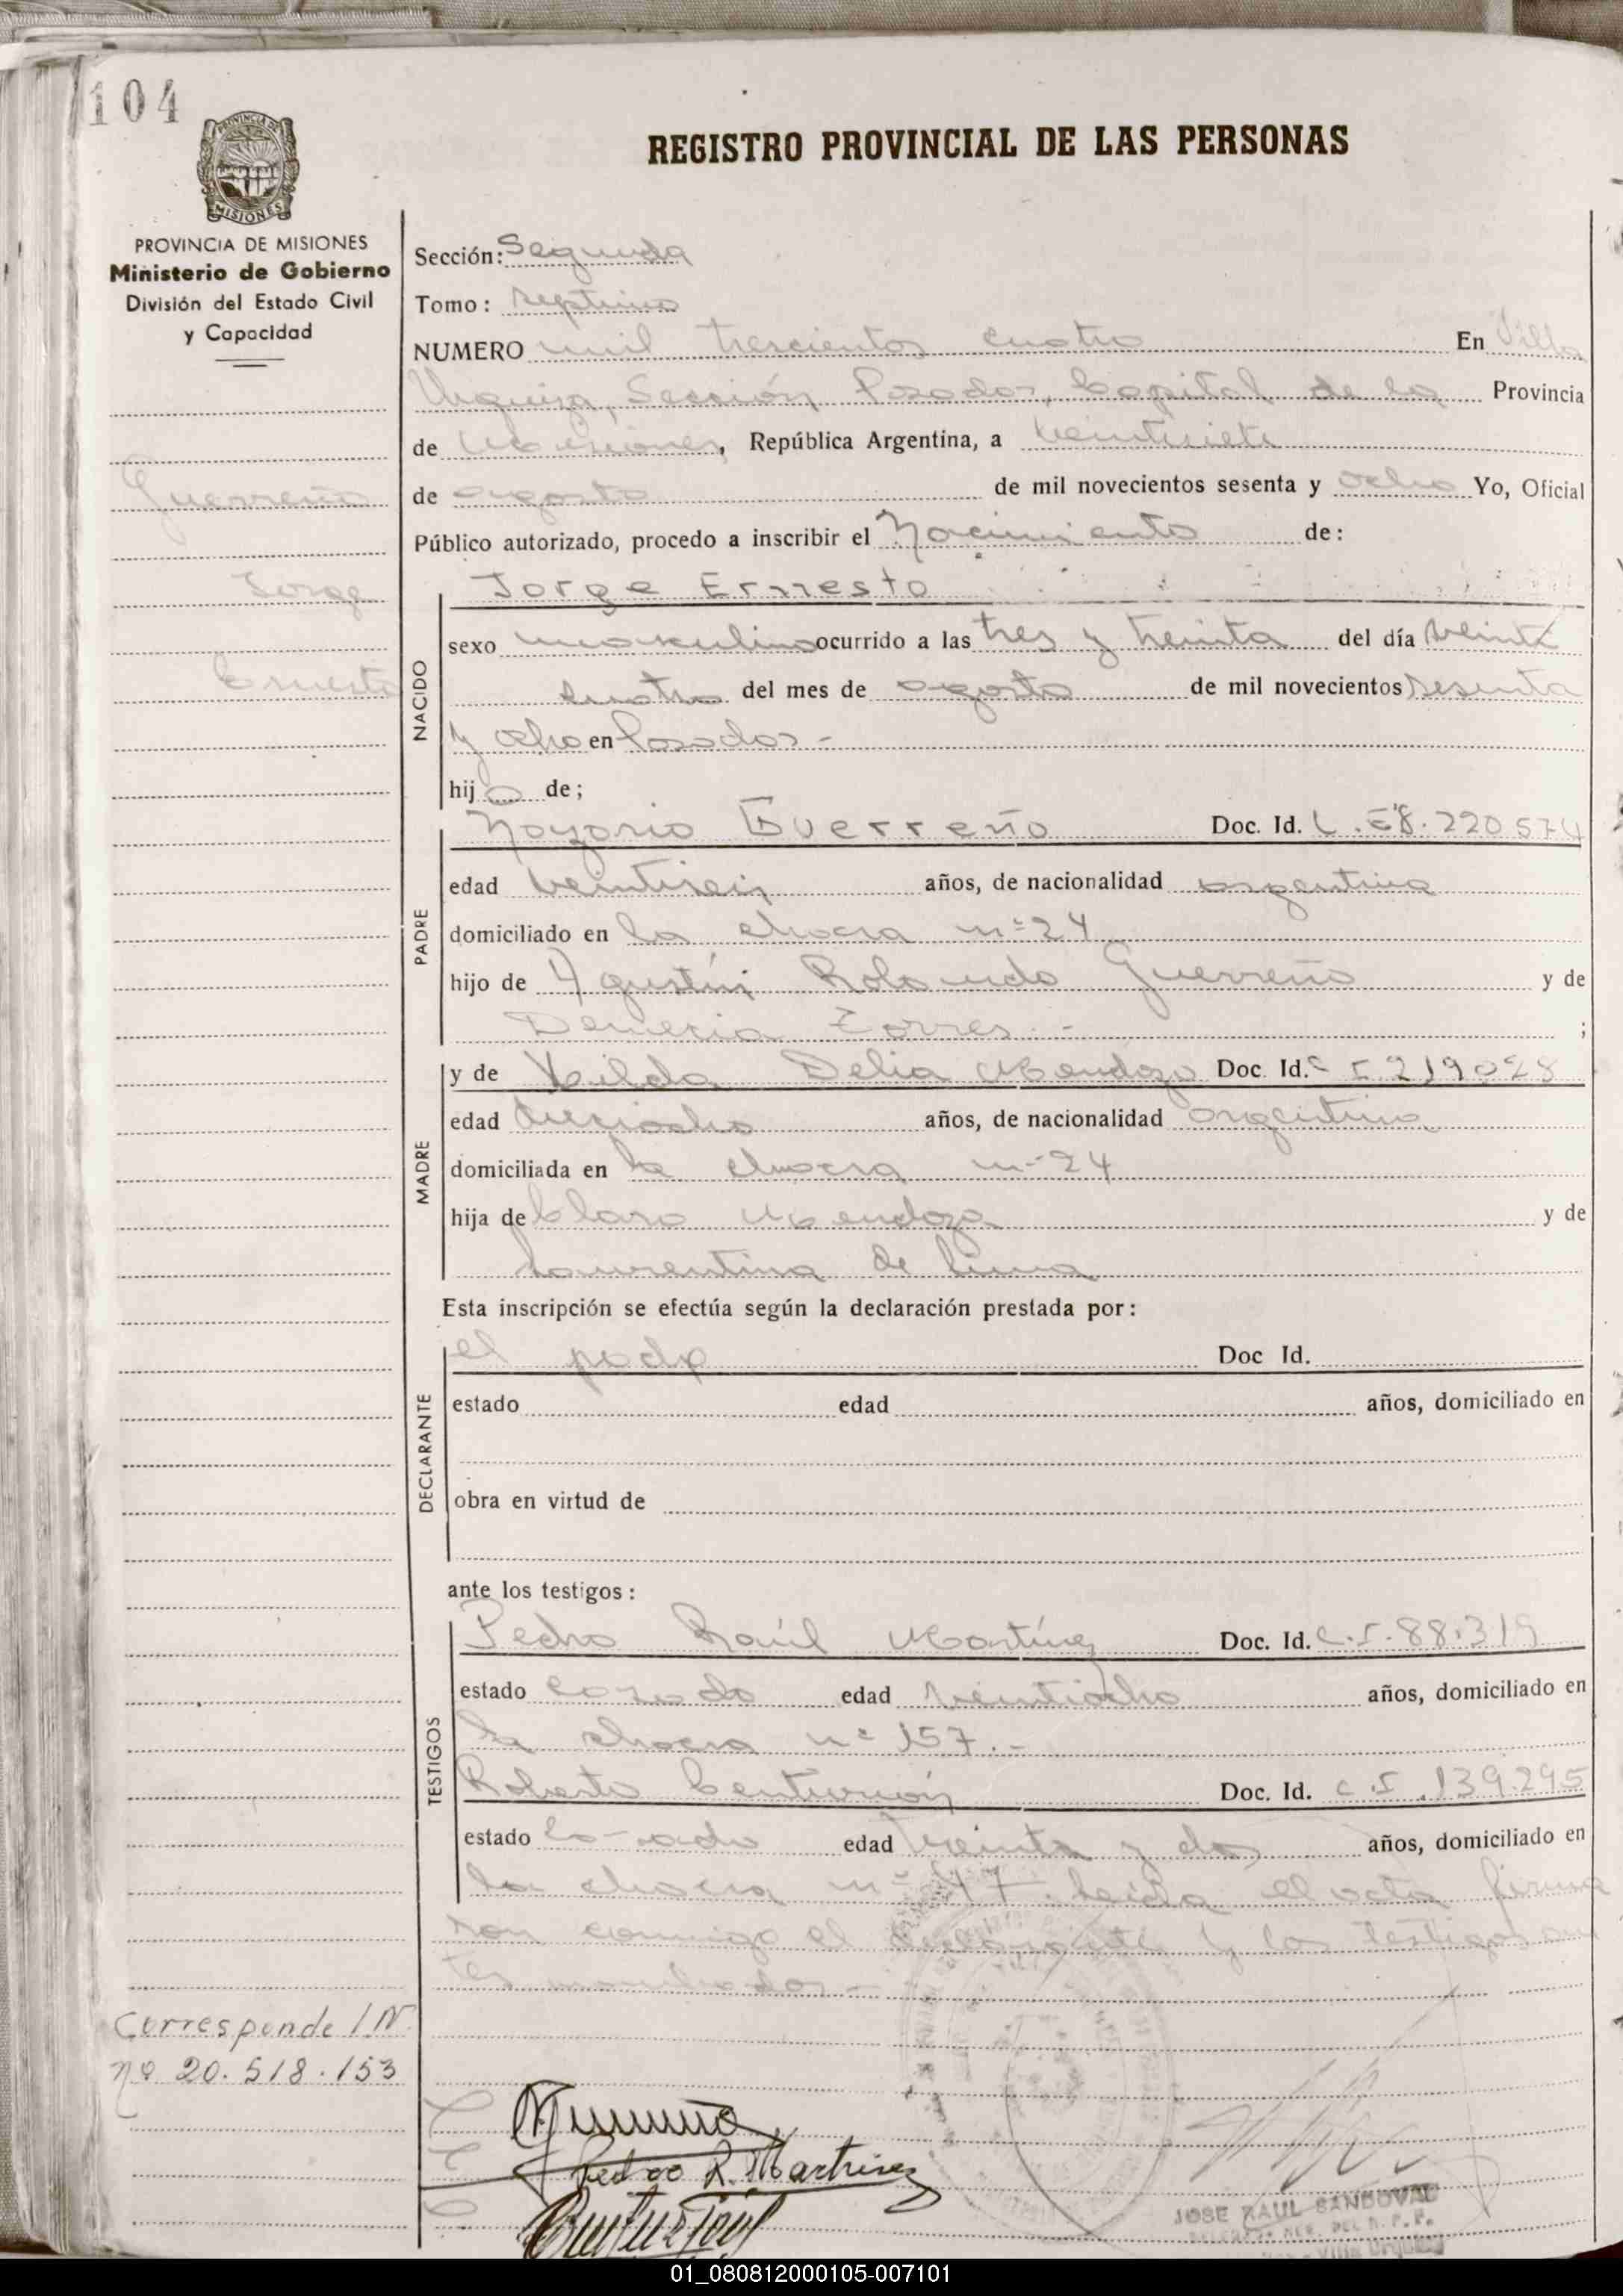 104
PROVINCIA DE MISIONES
REGISTRO PROVINCIAL DE LAS PERSONAS
PROVINCIA DE MISIONES
Ministerio de Gobierno
División del Estado Civil
y Capacidad
Guerreño
Jorge
Ernesto
Sección: Segunda
Tomo: septimo
NUMERO mil trescientos cuatro En Villa
Urquiza, Sección Posadas, Capital de la Provincia
de Misiones, República Argentina, a veintisiete
de agosto de mil novecientos sesenta y ocho Yo, Oficial
Público autorizado, procedo a inscribir el Nacimiento de:
NACIDO
Jorge Ernesto
sexo masculino ocurrido a las tres y treinta del día veinti
cuatro del mes de agosto de mil novecientos sesenta
y ocho en Posadas.-
hijo de;
PADRE
Nazario Guerreño Doc. Id. L.E 8.220574
edad veintiseis años, de nacionalidad argentina
domiciliado en la chacra nº 24
hijo de Agustín Rolando Guerreño y de
Demecia Torres.- ;
MADRE
y de Hilda Delia Mendoza Doc. Id. C I 219028
edad dieciocho años, de nacionalidad argentina
domiciliada en la chacra nº 24
hija de Claro Mendoza y de
Laurentina de Lima
Esta inscripción se efectúa según la declaración prestada por:
DECLARANTE
el padre Doc Id.
estado edad años, domiciliado en
obra en virtud de
ante los testigos:
TESTIGOS
Pedro Raúl Martínez Doc. Id. C.I. 88.319
estado casado edad veintiocho años, domiciliado en
la chacra nº 157.-
Roberto Centurión Doc. Id. C.I. 139.295
estado casado edad treinta y dos años, domiciliado en
la chacra nº 47. Leída el acta firma
ron conmigo el declarante y los testigos an
tes nombrados.-
Corresponde I.N.
nº 20.518.153
Pedro R. Martinez
JOSE RAUL SANDOVAL
01_080812000105-007101